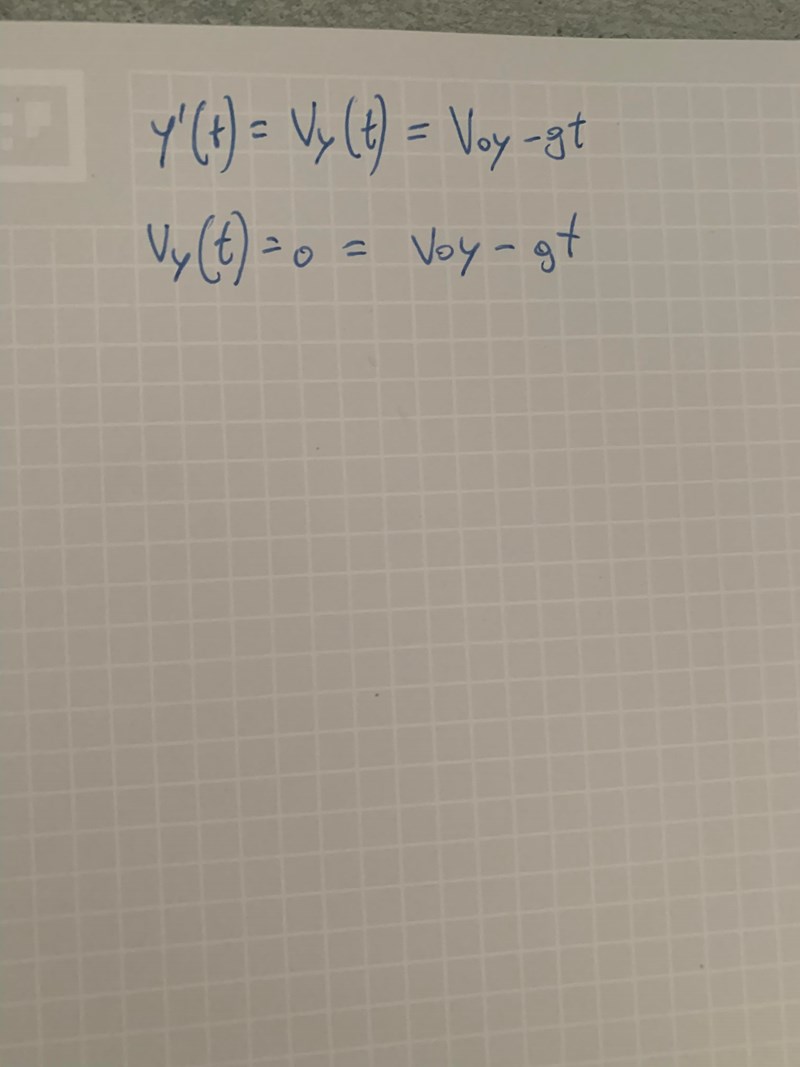 y'(t) = Vy(t) = Voy - gt
Vy(t) = 0 = Voy - gt